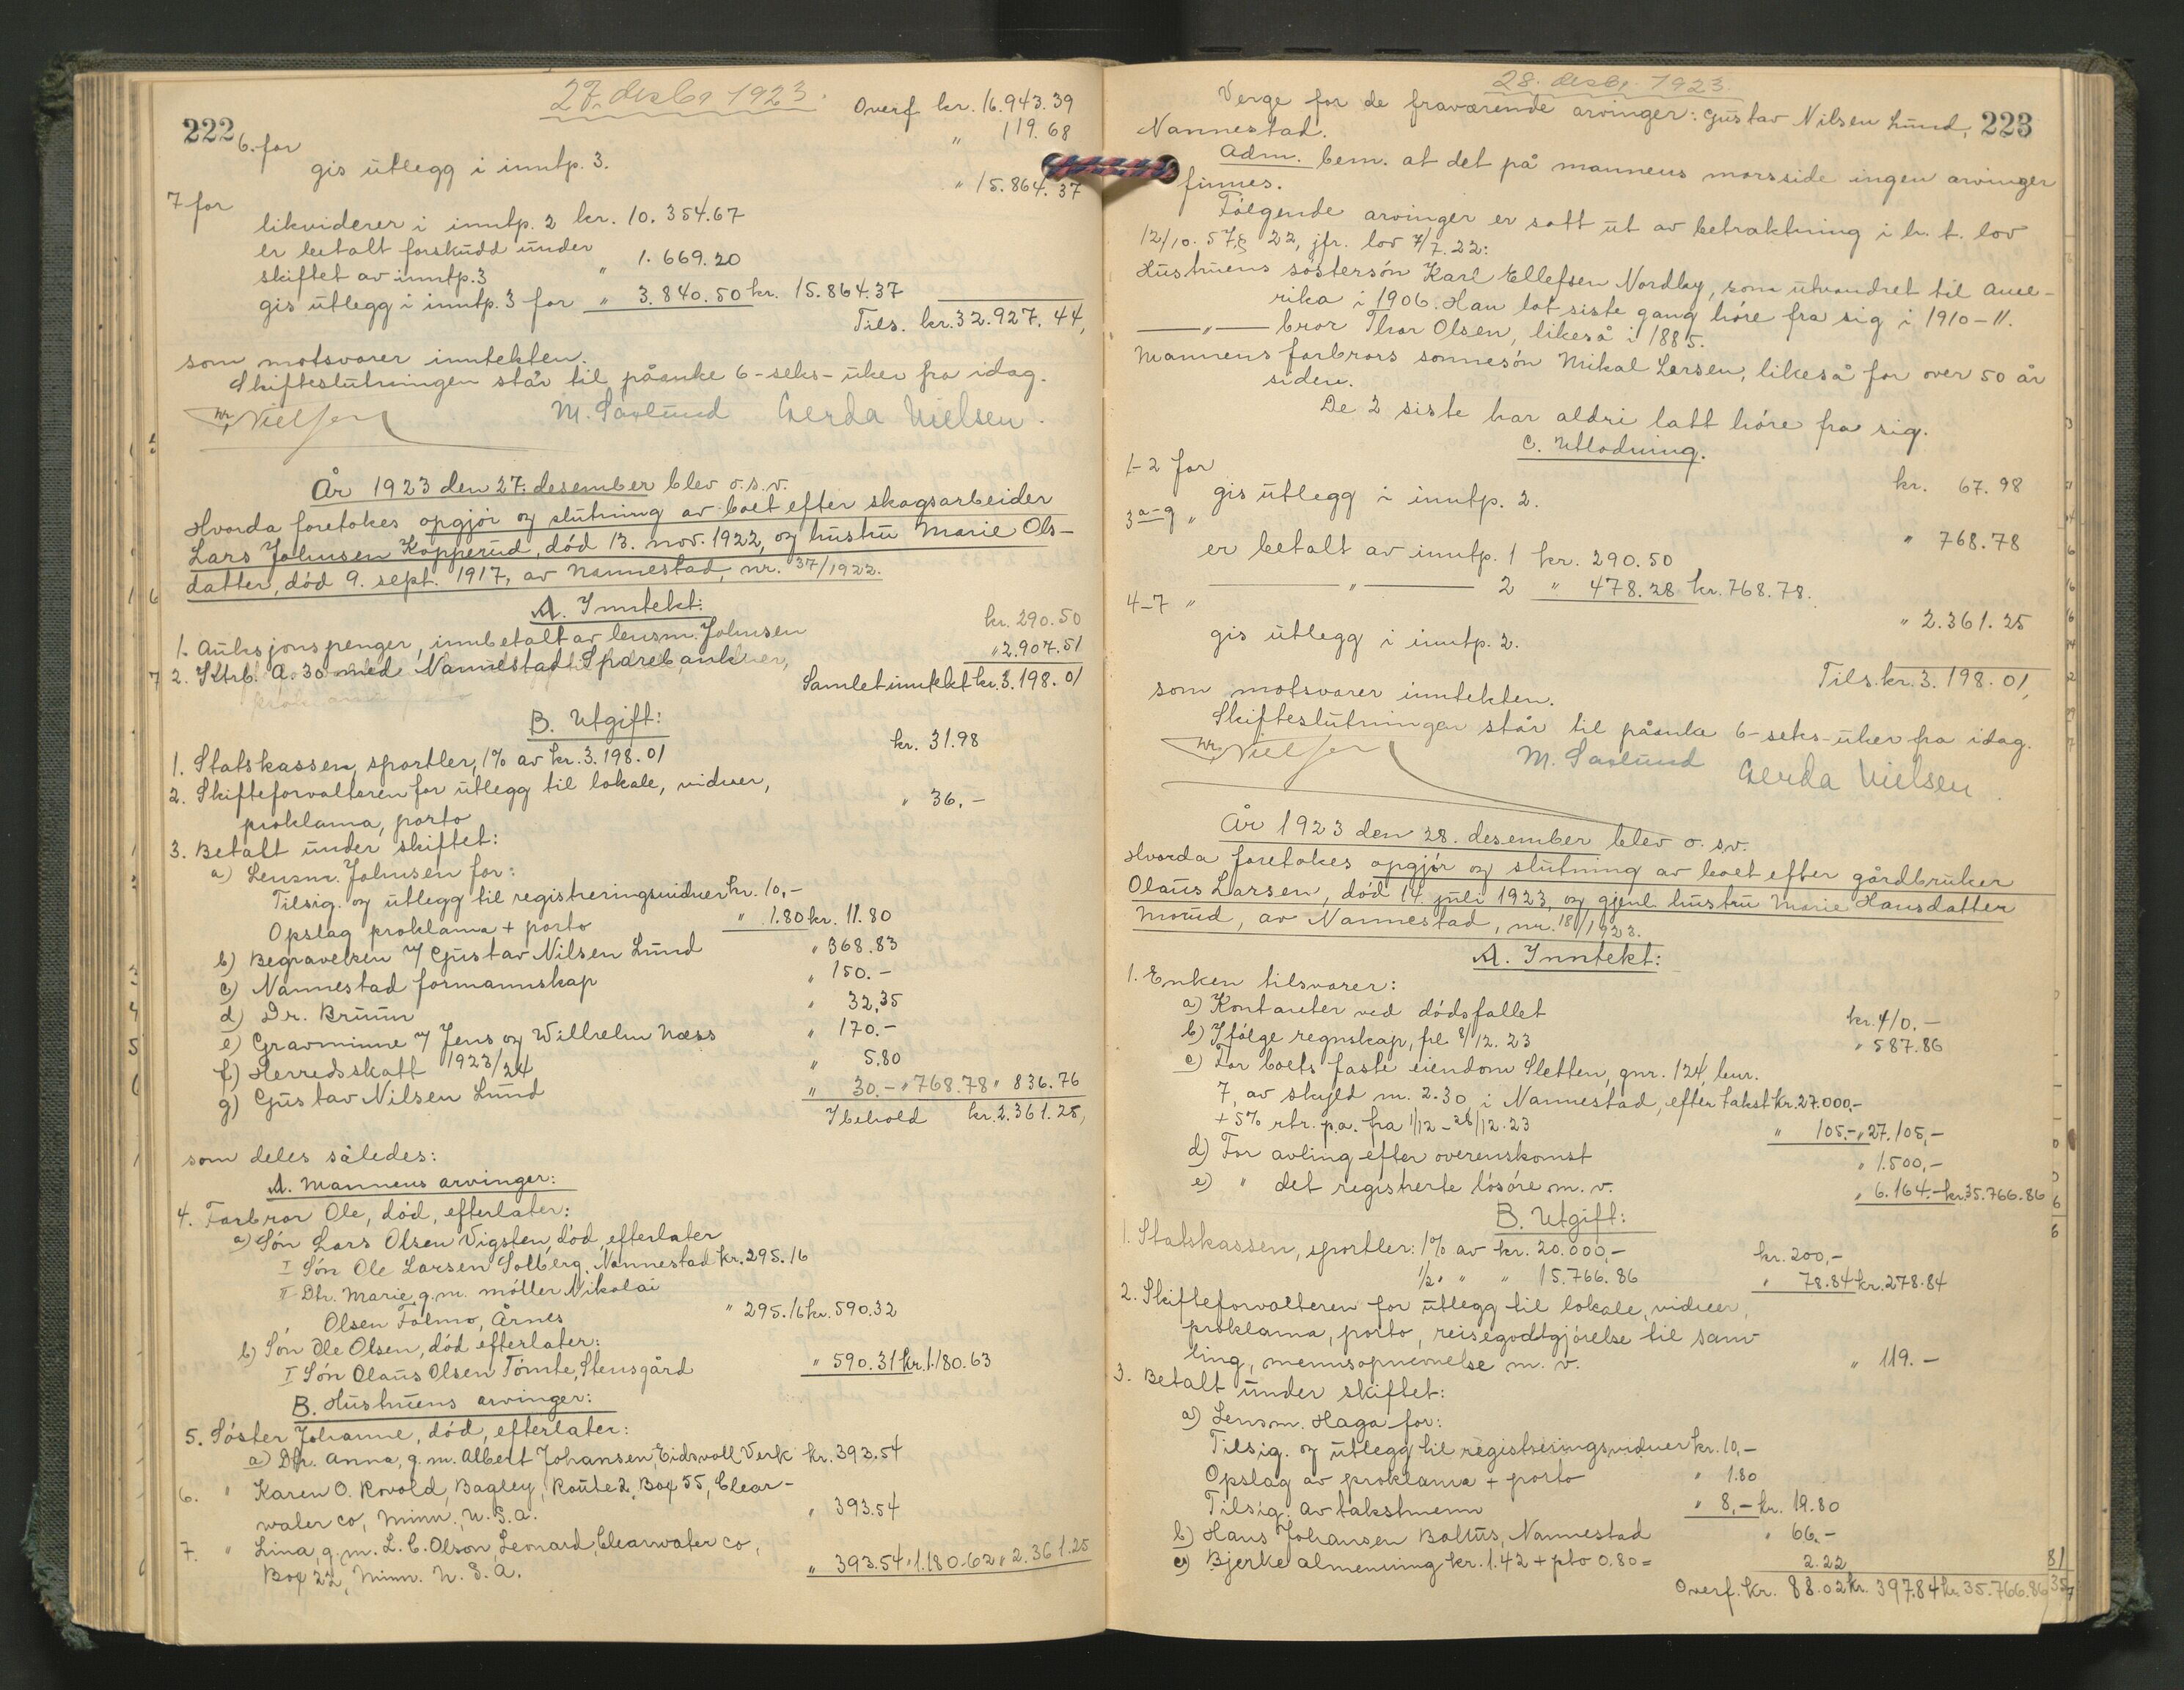 27. desbr 1923.
222
Overf. kr. 16.943.39
6. for " 119.68
gis utlegg i inntp. 3.
7 for " 15.864.37
likviderer i inntp. 2 kr. 10.354.67
er betalt forskudd under
skiftet av inntp. 3 " 1.669.20
gis utlegg i inntp. 3 for " 3.840.50 kr. 15.864.37
Tils. kr. 32.927.44,
som motsvarer inntekten.
Skifteslutningen står til påanke 6-seks-uker fra idag.
Nielsen M. Saxlund Gerda Nielsen.
År 1923 den 27. desember blev o.s.v.
Hvorda foretokes opgjör og slutning av boet efter skogsarbeider
Lars Johnsen Kopperud, död 13. nov. 1922, og hustru Marie Ols-
datter, död 9. sept. 1917, av Nannestad, nr. 37/1922.
A. Inntekt:
1. Auksjonspenger, innbetalt av lensm. Johnsen kr. 290.50
2. Ktrb. A. 30 med Nannestad Sparebank " 2.907.51
Samlet inntekt kr. 3.198.01
B. Utgift:
1. Statskassen, sportler, 1% av kr. 3.198.01 kr. 31.98
2. Skifteforvalteren for utlegg til lokale, vidner,
proklama, porto " 36.-
3. Betalt under skiftet:
a) Lensm. Johnsen for:
Tilsig. og utlegg til registreringsvidner kr. 10,-
Opslag proklama + porto " 1.80 kr. 11.80
b) Begravelsen v/ Gustav Nilsen Lund " 368.83
c) Nannestad formannskap " 150.-
d) Dr. Bruun " 32,35
e) Gravminne v/ Jens og Wilhelm Næss " 170.-
f) Herredsskatt 1923/24 " 5.80
g) Gustav Nilsen Lund " 30.- " 768.78 " 836.76
I behold kr. 2.361.25,
som deles således:
A. Mannens arvinger:
4. Farbror Ole, död, efterlater:
a) Sön Lars Olsen Vigsten, död, efterlater
I Sön Ole Larsen Solberg, Nannestad kr. 295.16
II Dtr. Marie, g.m. möller Nikolai
Olsen Folmo, Årnes " 295.16 kr. 590.32
b) Sön Ole Olsen, död efterlater:
I Sön Olaus Olsen Tömte, Stensgård " 590.31 kr. 1.180.63
B. Hustruens arvinger:
5. Söster Johanne, död, efterlater:
a) Dtr. Anna, g.m. Albert Johansen, Eidsvoll Verk kr. 393.54
6. " Karen O. Rovold, Bagley, Route 2, Box 55, Clear-
water co, Minn., U.S.A. " 393.54
7. " Lina, g.m. L.C. Olson, Leonard, Clearwater co,
Box 22, Minn. U.S.A. " 393.54 " 1.180.62 " 2.361.25
28. desbr. 1923.
223
Verge for de fraværende arvinger: Gustav Nilsen Lund,
Nannestad.
Adm. bem. at det på mannens morsside ingen arvinger
finnes.
Følgende arvinger er satt ut av betraktning i h. t. lov
12/10. 57 § 22, jfr. lov 7/7. 22:
Hustruens söstersön Karl Ellefsen Nordby, som utvandret til Ame-
rika i 1906. Han lot siste gang höre fra sig i 1910-11.
—"— bror Thor Olsen, likeså i 1885.
Mannens farbrors sönnesön Mikal Larsen, likeså for over 50 år
siden.
De 2 siste har aldri latt höre fra sig.
C. Utlodning.
1-2 for kr. 67.98
gis utlegg i inntp. 2.
3a-g " " 768.78
er betalt av inntp. 1 kr. 290.50
—"— 2 " 478.28 kr. 768.78.
4-7 " " 2.361.25
gis utlegg i inntp. 2.
Tils. kr. 3.198.01,
som motsvarer inntekten.
Skifteslutningen står til påanke 6-seks-uker fra idag.
Nielsen M. Saxlund Gerda Nielsen
År 1923 den 28. desember blev o.s.v.
Hvorda foretokes opgjör og slutning av boet efter gårdbruker
Olaus Larsen, död 14. juli 1923, og gjenl. hustru Marie Hansdatter
Morud, av Nannestad, nr. 18/1923.
A. Inntekt:
1. Enken tilsvarer:
a) Kontanter ved dödsfallet kr. 410.-
b) Ifölge regnskap, frl. 8/12. 23 " 587.86
c) For boets faste eiendom Sletten, gnr. 124, bnr.
7, av skyld m. 2.30 i Nannestad, efter takst kr. 27.000,-
+ 5% rtr. p.a. fra 1/12-28/12.23 " 105.- " 27.105,-
d) For avling efter overenskomst " 1.500,-
e) " det registrerte lösöre m. v. " 6.164.- kr. 35.766.86
B. Utgift:
1. Statskassen, sportler: 1% av kr. 20.000,- kr. 200,-
1/2 " " " 15.766.86 " 78.84 kr. 278.84
2. Skifteforvalteren for utlegg til lokale, vidner,
proklama, porto, reisegodtgjörelse til sam-
ling, mennsopnevnelse m. v. " 119.-
3. Betalt under skiftet:
a) Lensm. Haga for:
Tilsig. og utlegg til registreringsvidner kr. 10,-
Opslag av proklama + porto " 1.80
Tilsig. av takstmenn " 8,- kr. 19.80
b) Hans Johansen Baltus, Nannestad " 66.-
c) Bjerke almenning kr. 1.42 + pto 0.80 = 2.22
Overf. kr. 88.02 kr. 397.84 kr. 35.766.86